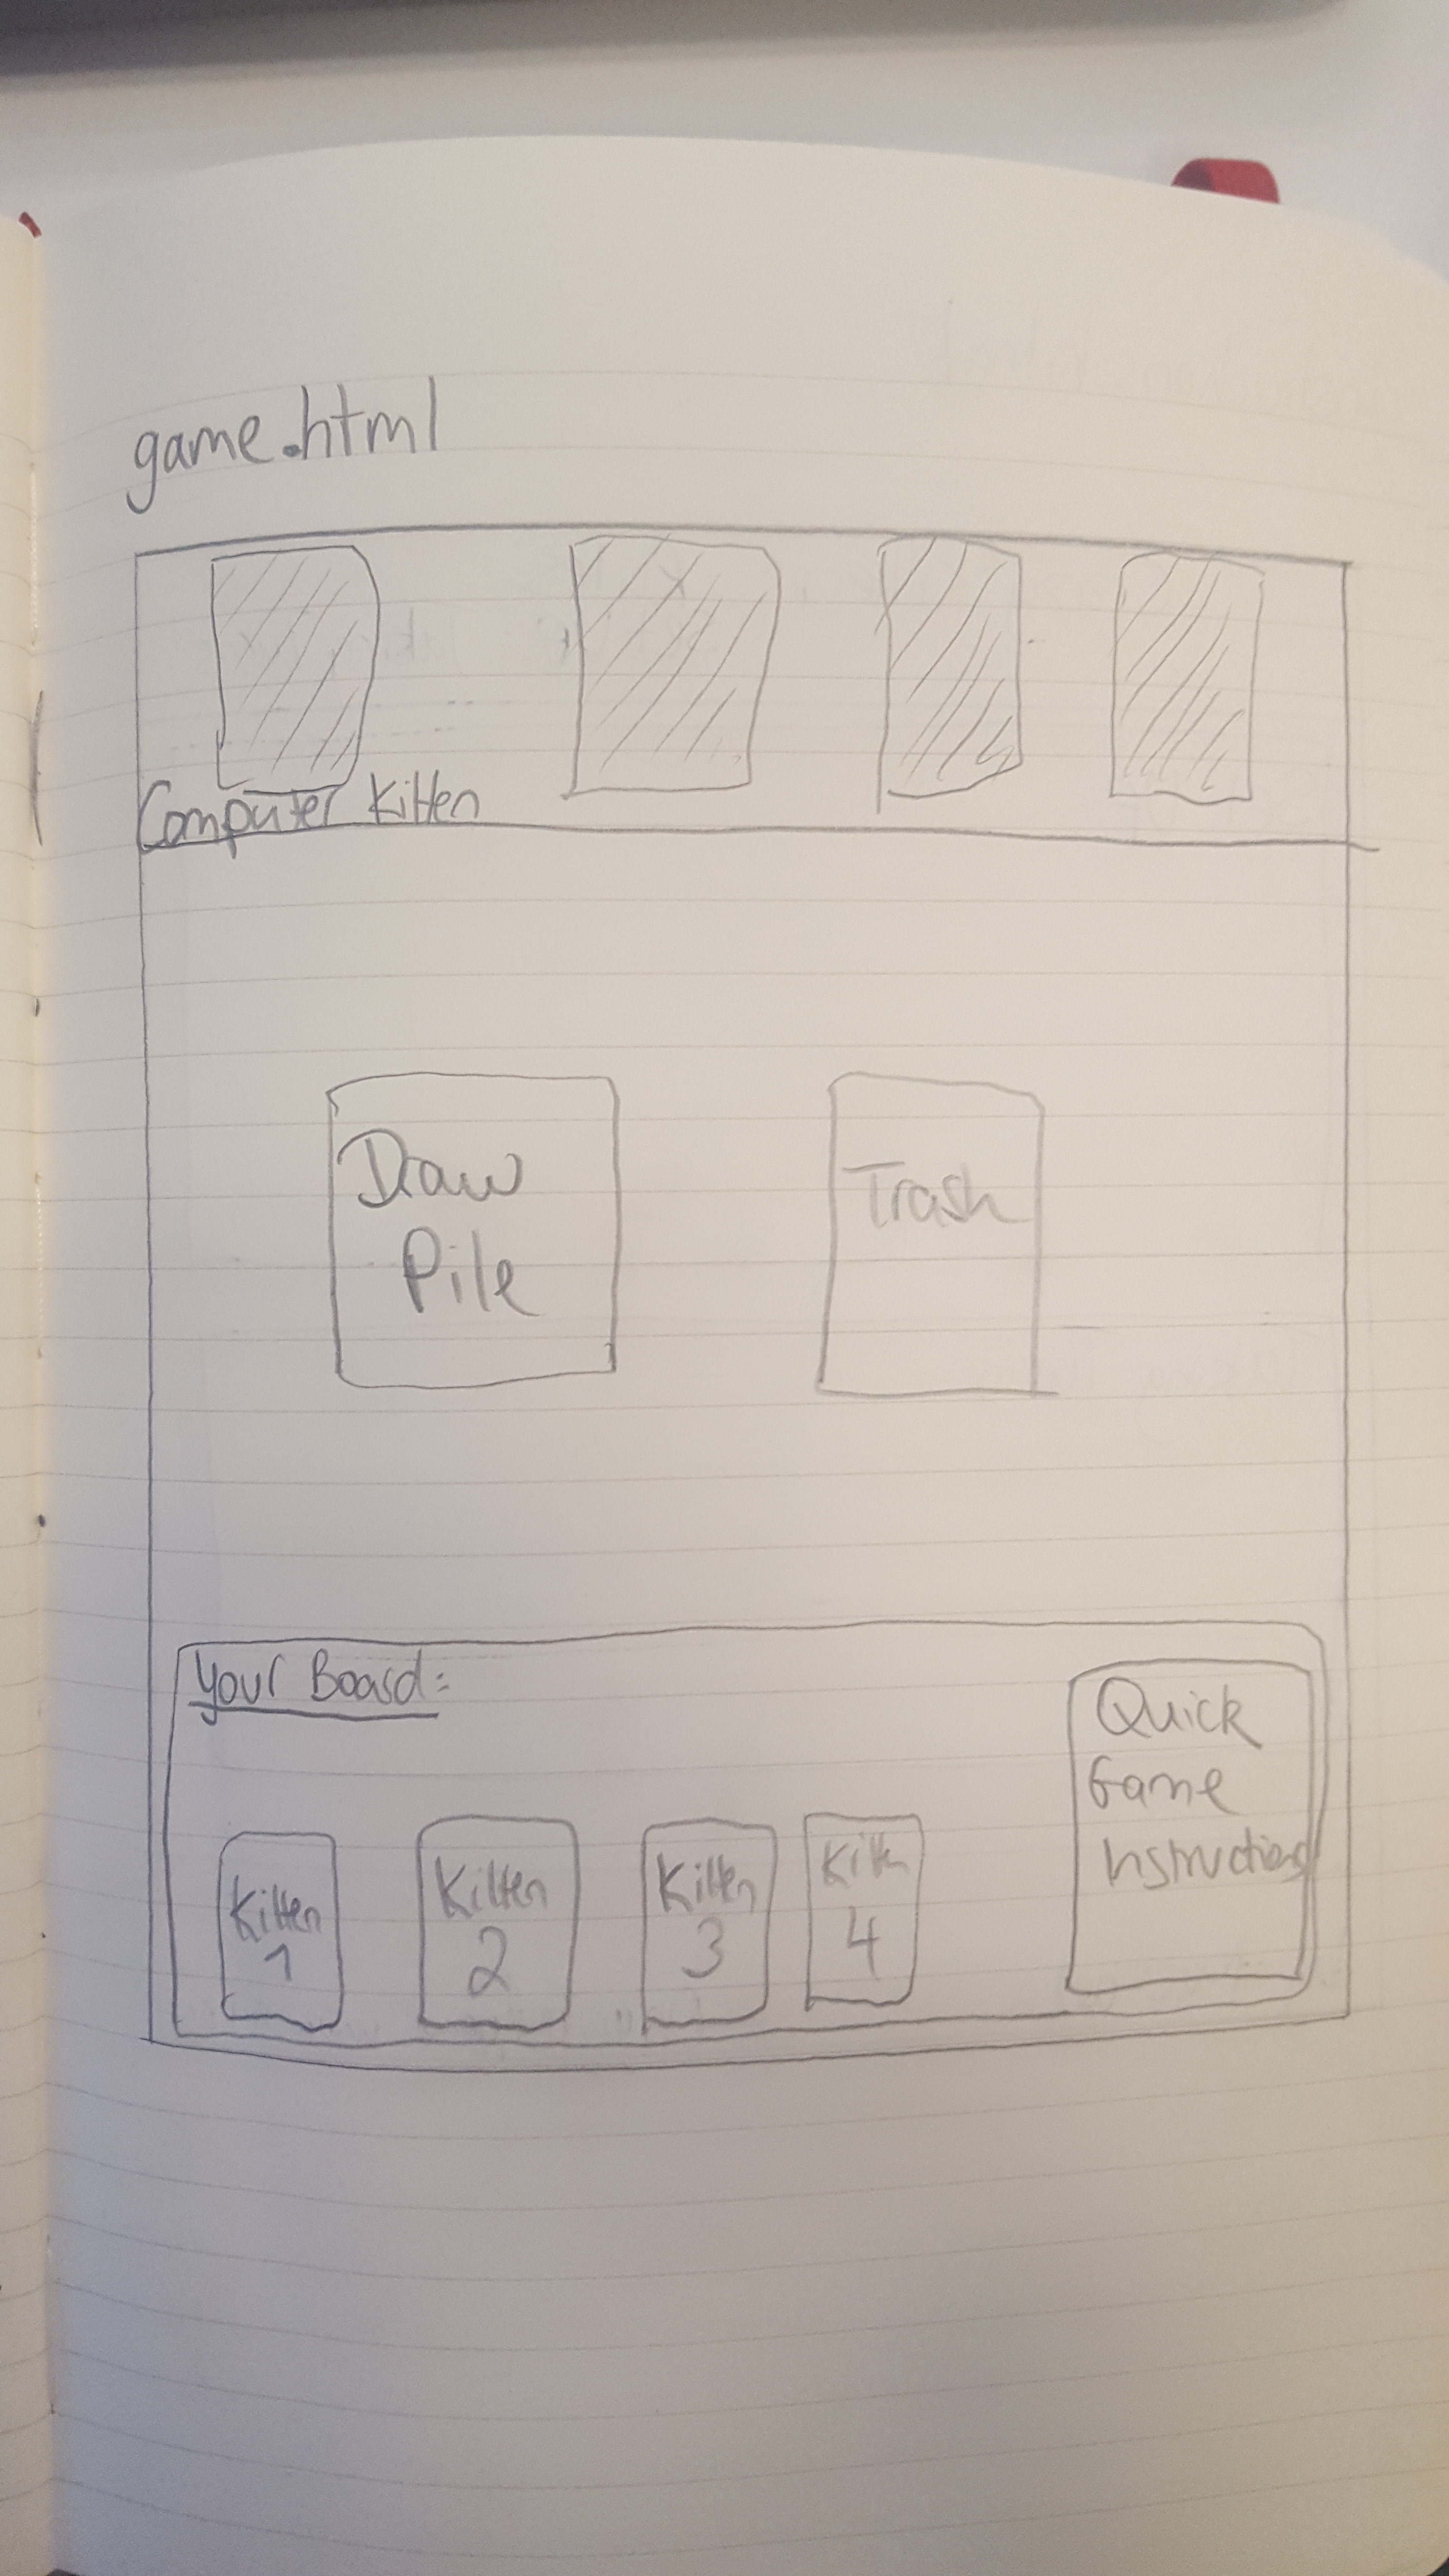 game.html
Computer Kitten
Draw
Pile
Trash
Your Board:
Kitten
1
Kitten
2
Kitten
3
Kitten
4
Quick
Game
Instructions